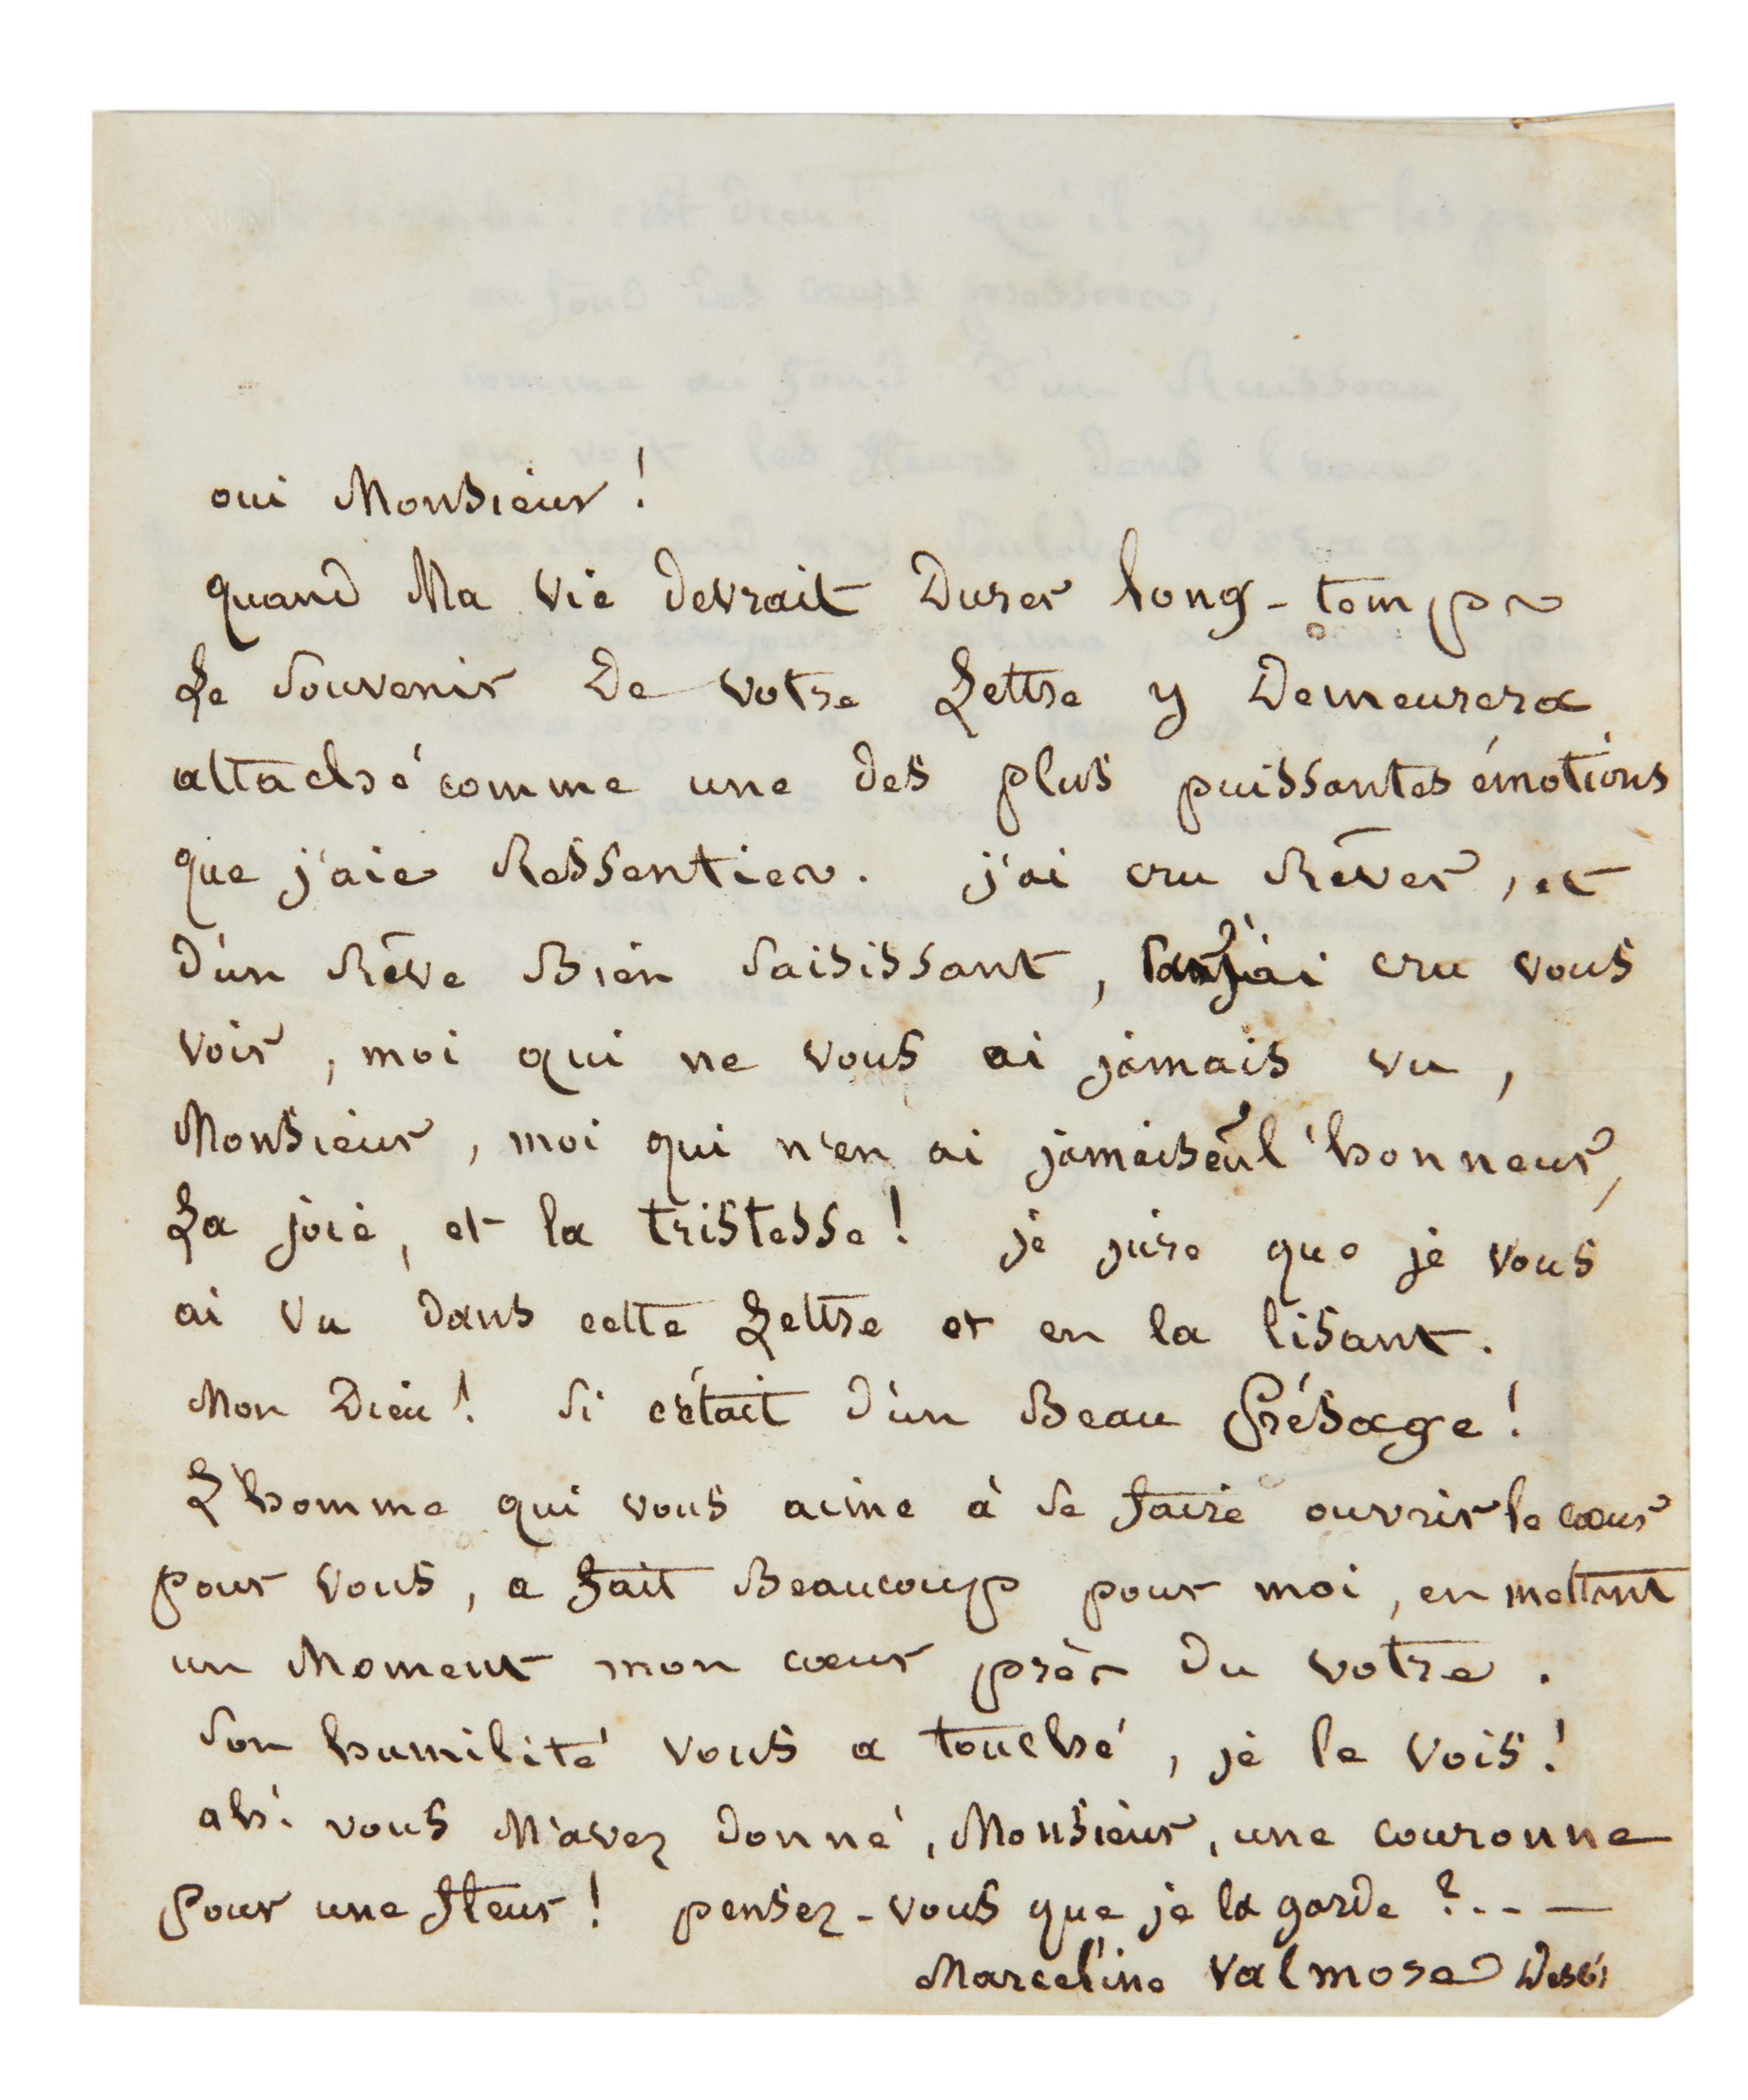 oui Monsieur !
quand Ma vie devrait Durer long-temps
Le Souvenir De votre Lettre y Demeurera
attaché comme une des plus puissantes émotions
que j'aie Ressenties. j'ai cru Rêver, et
d'un Rêve Bien Saisissant, j'ai cru vous
voir, moi qui ne vous ai jamais vu,
Monsieur, moi qui n'en ai jamais eu l'honneur,
La joie, et la tristesse ! je jure que je vous
ai vu dans cette Lettre et en la lisant.
Mon Dieu ! Si c'était d'un Beau Présage !
L'homme qui vous aime à se faire ouvrir le cœur
pour vous, a fait Beaucoup pour moi, en mettant
un Moment mon cœur près du votre.
Son humilité vous a touché, je le vois !
ah ! vous M'avez donné, Monsieur, une couronne
Pour une fleur ! pensez-vous que je la garde ?...
Marceline Valmore